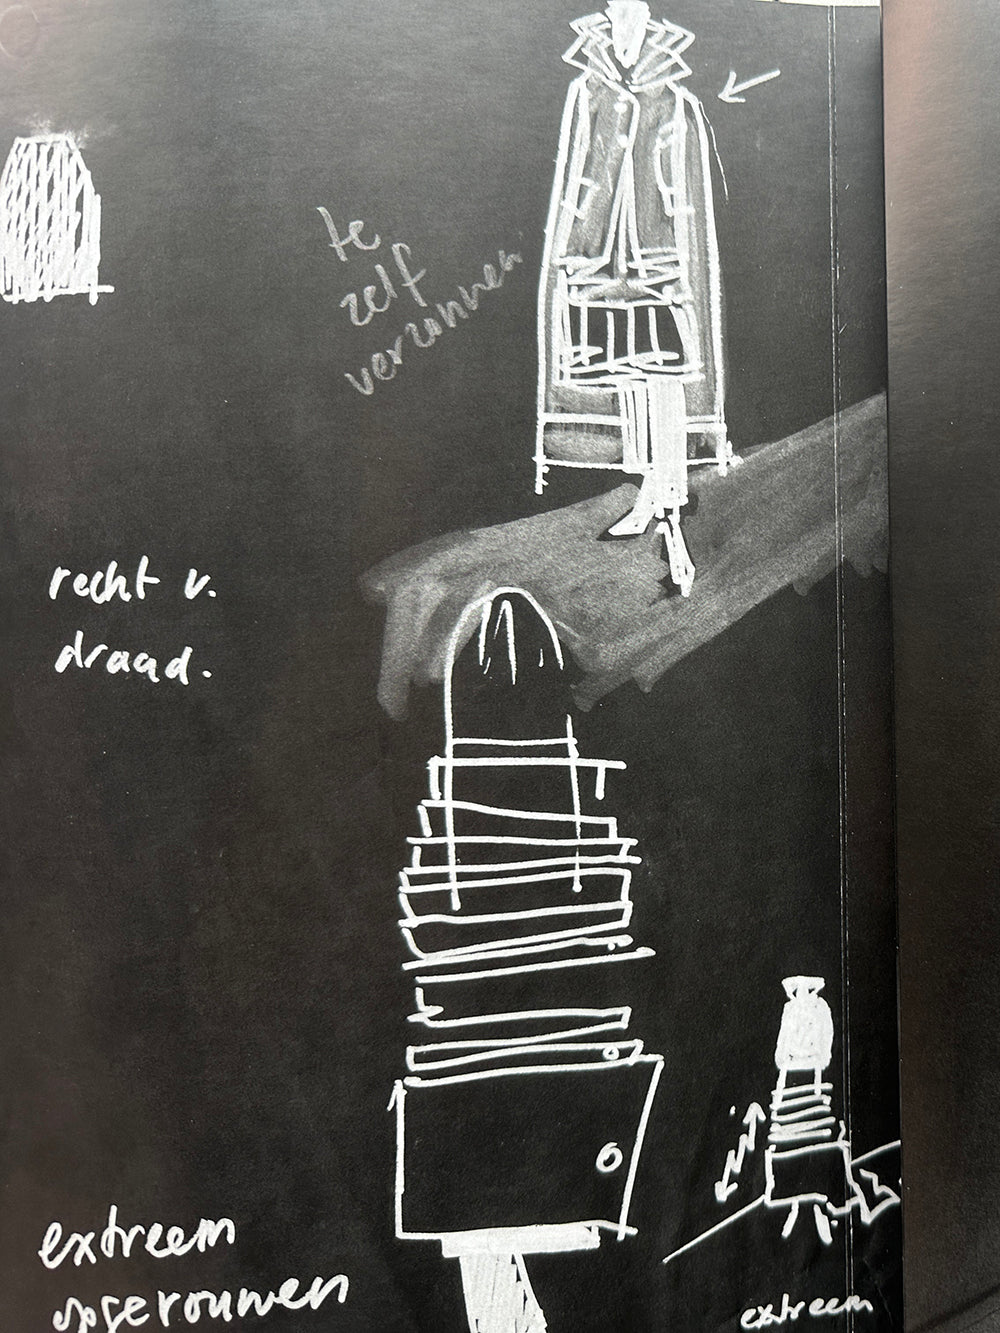 te
zelf
verzonnen
recht v.
draad.
extreem
opgerouwen
extreem